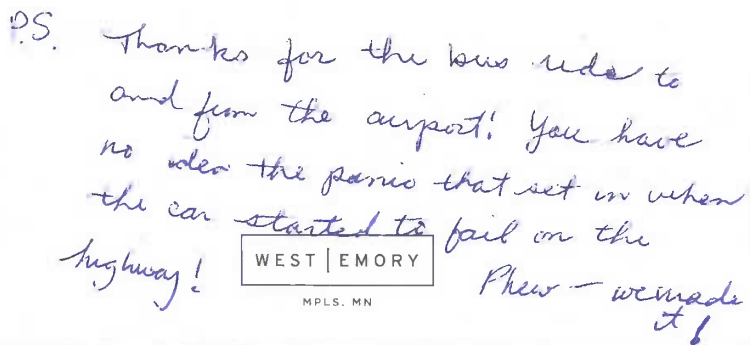 P.S. Thanks for the bus ride to
and from the airport! You have
no idea the panic that set in when
the car started to fail on the
highway! Phew - we made
it!
WEST | EMORY
MPLS. MN